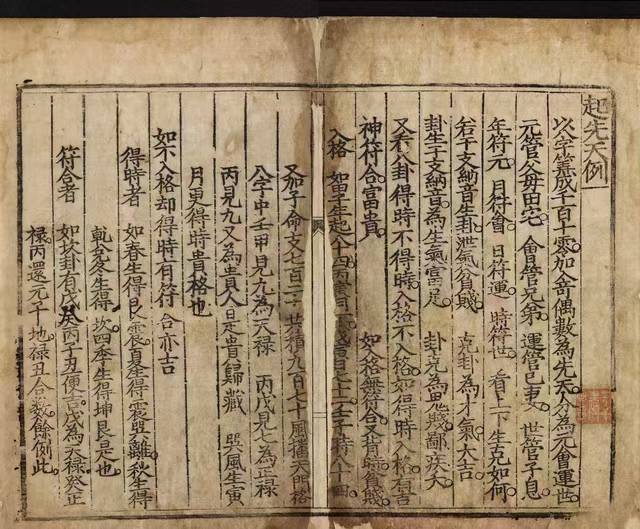 起先天例
以字筭成千百十零加合奇偶數為先天分為元會運世
元管父母田宅 會管兄弟 運管巳妻 世管子息
年符元 月符會 日符運 時符世 看上下生克如何
若干支納音生卦泄氣貧賤 克卦為才氣大吉
卦生干支納音為生氣富足 卦克為鬼賤鄙疾夭
又看八卦得時不得時入格不入格如得時入格有吉
神符合富貴 如入格無符合又背時貧賤
入格 如甲子年起八十四丙寅月 壬子時八十四
又加子命支七百二十共積九百七十風擂天門格
八字中壬甲見九為天祿 丙戊見七為正祿
丙見九又為貴人是貴歸藏 巽風生寅
月更得時貴格也
如不入格却得時有符合亦吉
得時者 如春生得艮震夏生得震巽離秋生得
乾兌冬生得坎四季生得坤艮是也
符合者 如坎卦有戊癸丙子丑便吉戊為天祿癸正
祿丙還元子地祿丑合數餘例此